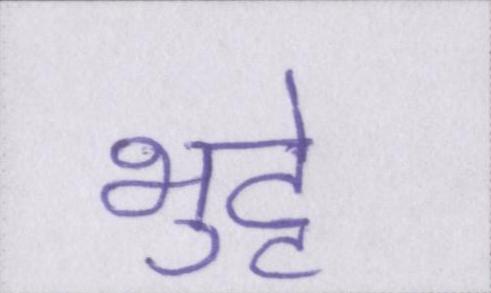 भुट्टे